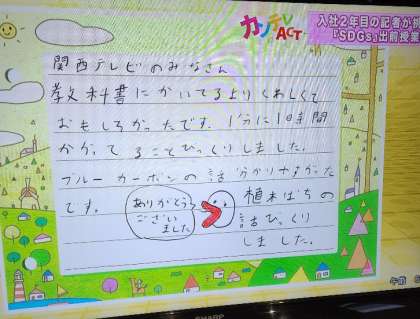 カンテレACT
入社2年目の記者が
『SDGs』出前授業
関西テレビのみなさん
教科書にかいてるよりくわしくて
おもしろかったです。1分に1日時間
かかってることびっくりしました。
ブルーカーボンの話分かりやすかった
です。
ありがとう
ござい
ました
植木ばちの
話びっくり
しました。
午前
SHARP